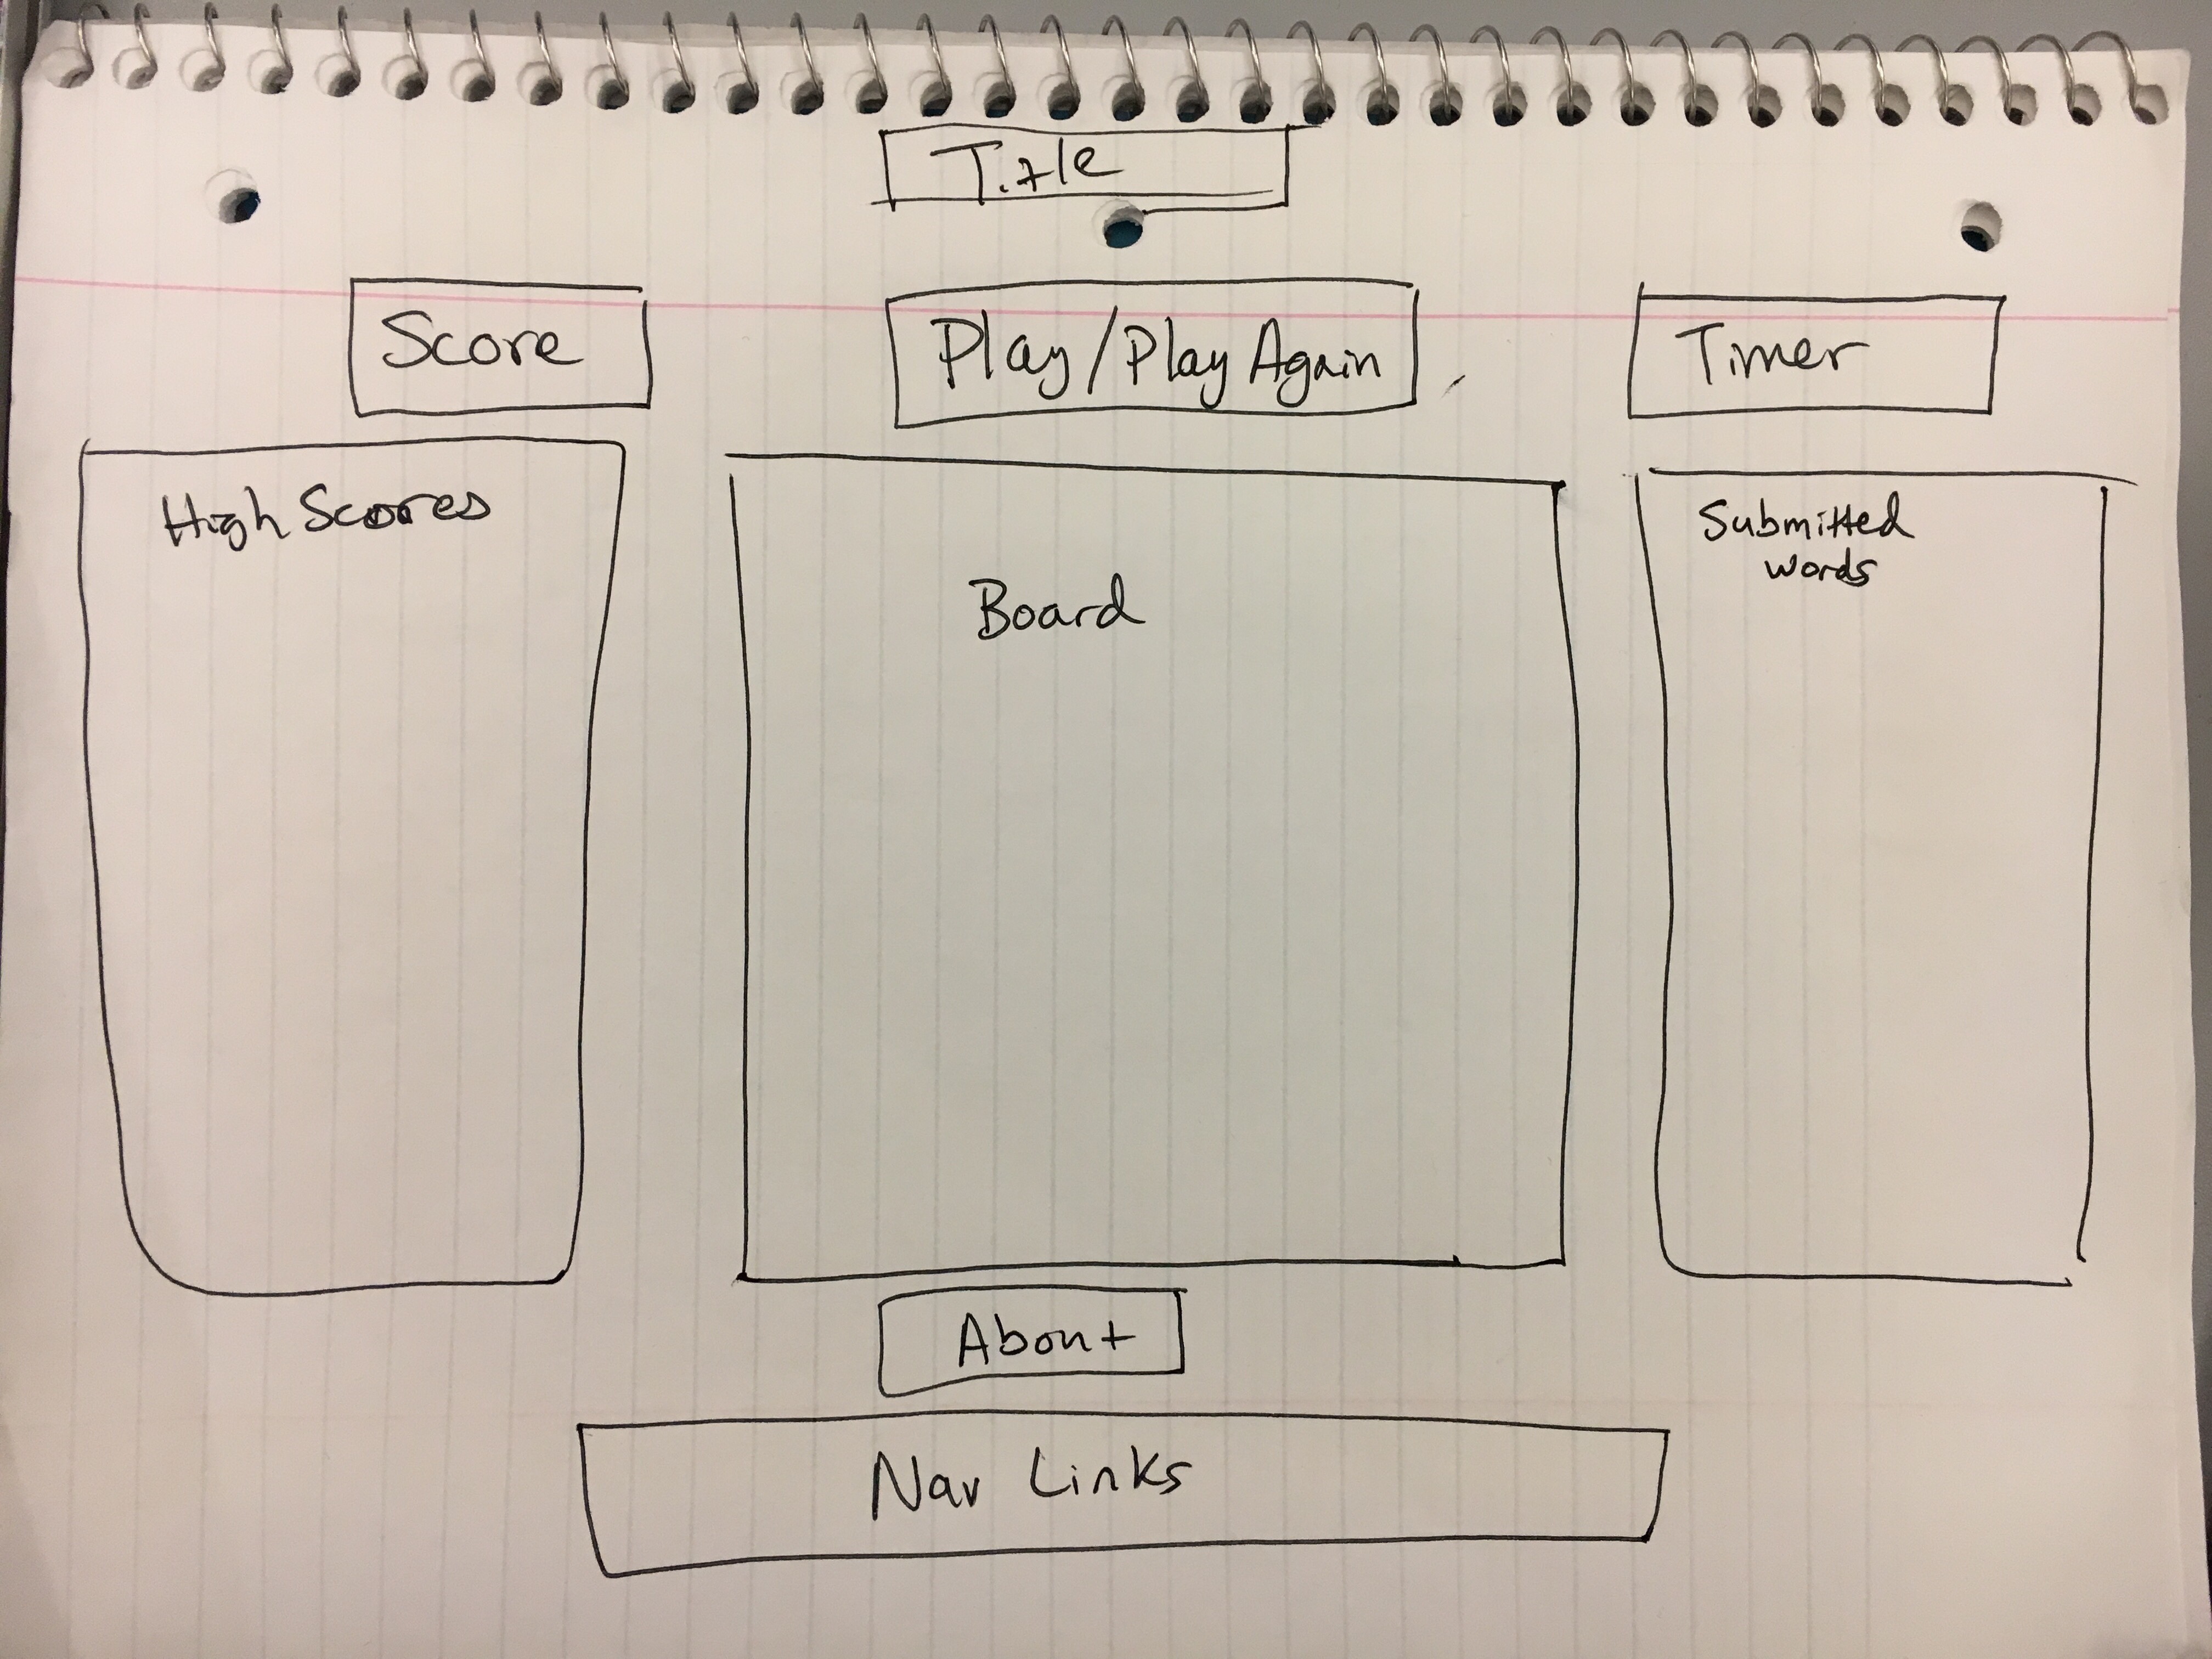 Title
Score
Play/Play Again
Timer
High Scores
Board
Submitted
words
About
Nav Links